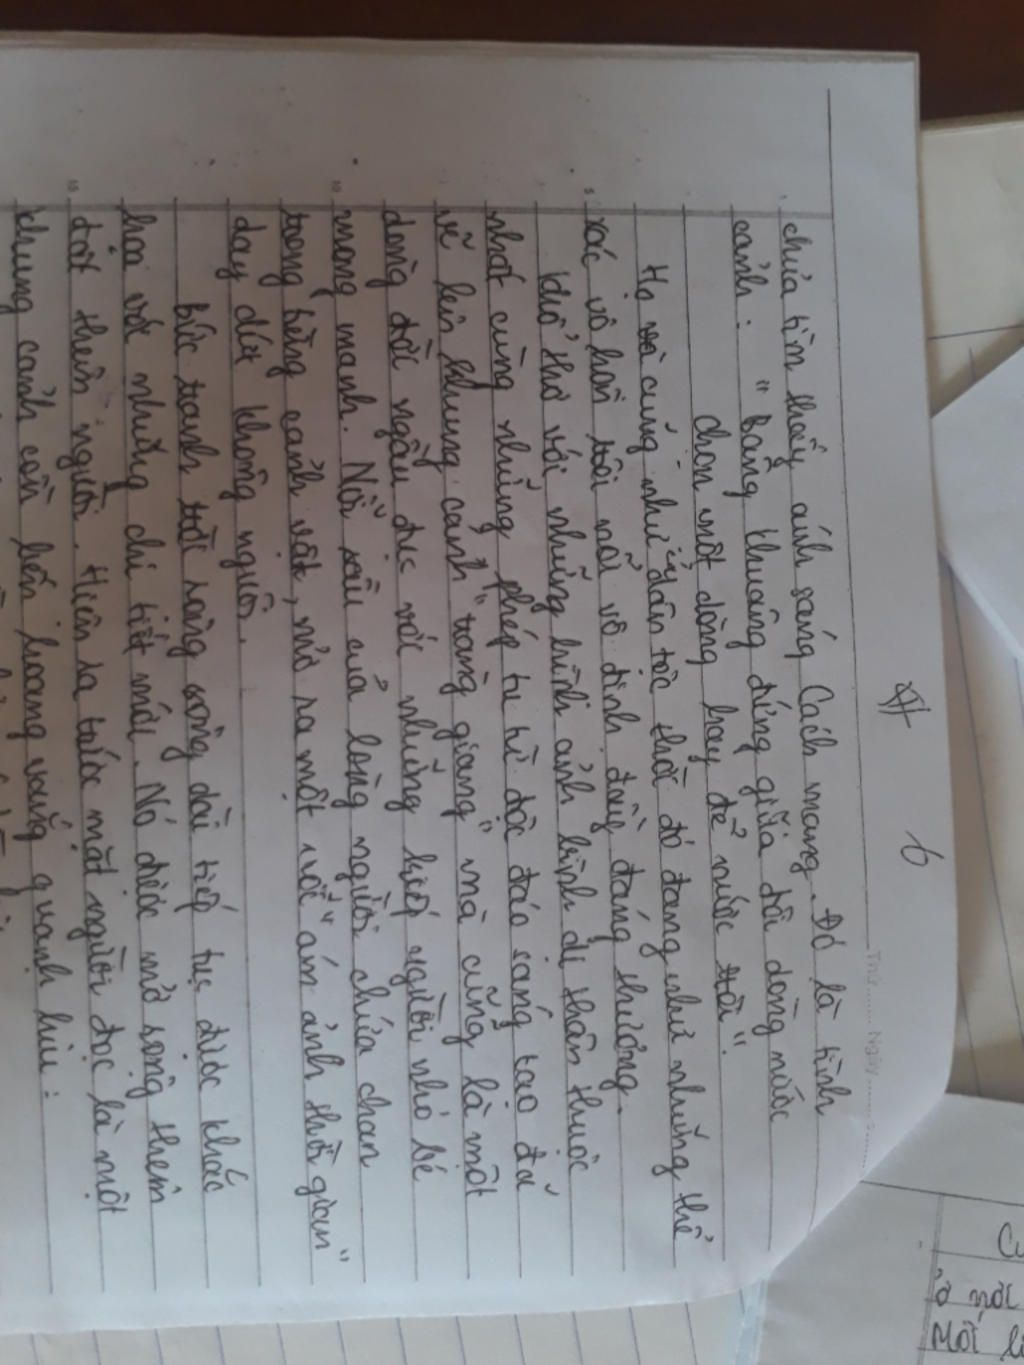 6
Thứ ...... Ngày
chưa tìm thấy ánh sáng Cách mạng. Đó là tình
cảnh: "Bâng khuâng đứng giữa đôi dòng nước
Chọn một dòng hay để nước trôi".
Họ và cũng như dân tộc thời đó đang như những thể
xác vô hồn trôi nổi vô định đầy đáng thương.
Khổ thơ với những hình ảnh bình dị thân thuộc
nhất cùng những phép tu từ độc đáo sáng tạo đã
vẽ lên khung cảnh "tràng giang" mà cũng là một
dòng đời ngầu đục với những kiếp người nhỏ bé
mong manh. Nỗi sầu của lòng người chứa chan
trong từng cảnh vật, mở ra một nỗi "ám ảnh thời gian"
day dứt khôn nguôi.
Bức tranh trời rộng sông dài tiếp tục được khắc
họa với những chi tiết mới. Nó được mở rộng thêm
đất thêm người. Hiện ra trước mặt người đọc là một
khung cảnh cồn bến hoang vắng quạnh hiu:
ở nơi
Một